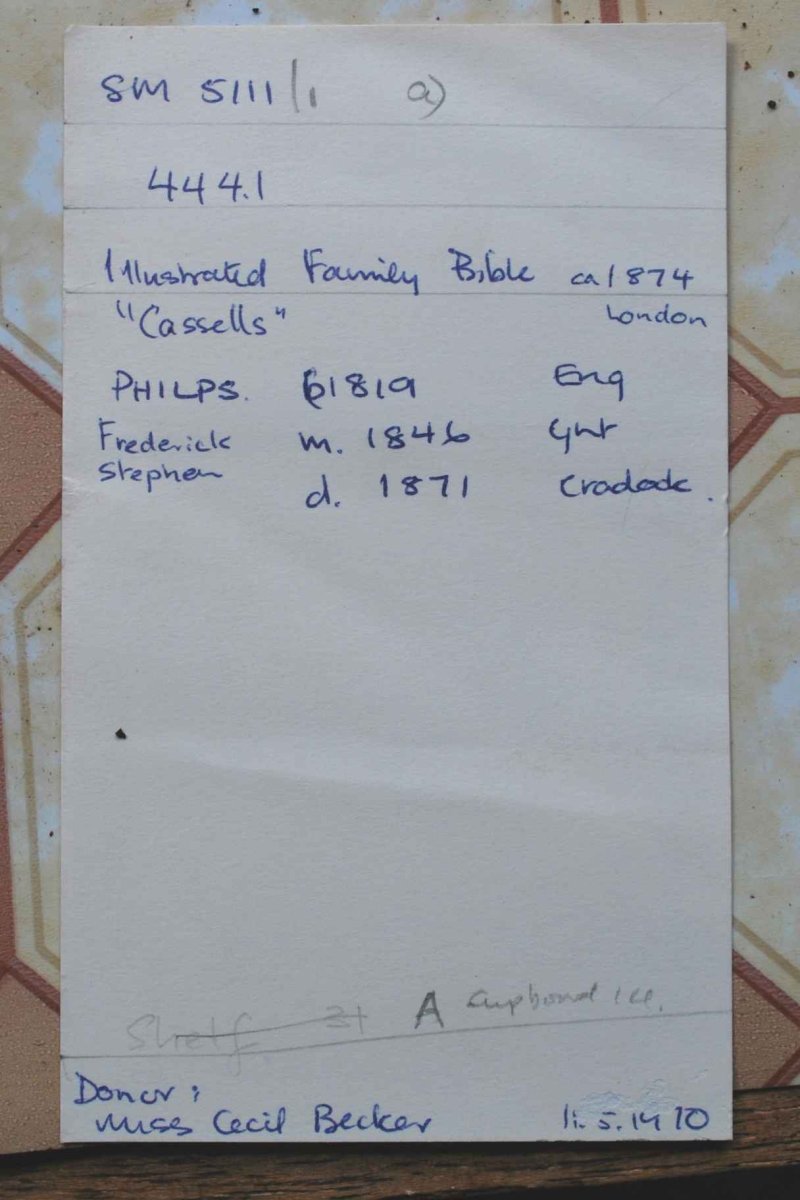 SM 5111/1 a)
444.1
Illustrated Family Bible ca 1874
"Cassells" London
PHILPS. b1819 Eng
Frederick m. 1846 Ght
Stephen d. 1871 Cradock.
Shelf 31 A Cupboard
Donor:
Miss Cecil Becker 11.5.1970